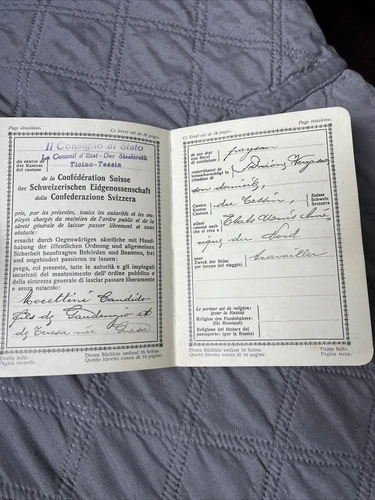 Page deuxième.
Ce livret est de 16 pages.
Il Consiglio di Stato
Le Conseil d'Etat - Der Staatsrath
Ticino-Tessin
du canton de
des Kantons
del cantone
de la Confédération Suisse
der Schweizerischen Eidgenossenschaft
della Confederazione Svizzera
prie, par les présentes, toutes les autorités et les em-
ployés chargés du maintien de l'ordre public et de la
sûreté générale de laisser passer librement et sans
obstacle:
ersucht durch Gegenwärtiges sämtliche mit Hand-
habung der öffentlichen Ordnung und allgemeinen
Sicherheit beauftragten Behörden und Beamten, frei
und ungehindert passieren zu lassen:
prega, col presente, tutte le autorità e gli impiegati
incaricati del mantenimento dell'ordine pubblico e
della sicurezza generale di lasciar passare liberamente
e senza ostacolo:
Candido
fils de Gaudenzio et
de Teresa née
Pagina seconda.
Dieses Büchlein umfasst 16 Seiten.
Questo libretto conta di 16 pagine.
Page troisième.
Ce livret est de 16 pages.
de son état
von Beruf
di condizione
paysan
ressortissant de
cittadino di
son domicile,
Canton
Kanton
Cantone
du Tessin,
Suisse
Schweiz
Svizzera
allant
reist nach
che si reca a
Etats Unis Amé
rique du Nord
pour
Zweck der Reise
per (scopo del viaggio)
travailler
Le porteur est de religion:
(pour la Russie)
Religion des Passinhabers:
(für Russland)
Religione del titolare del
passaporto: (per la Russia)
Dieses Büchlein umfasst 16 Seiten.
Questo libretto conta di 16 pagine.
Dritte Seite.
Pagina terza.